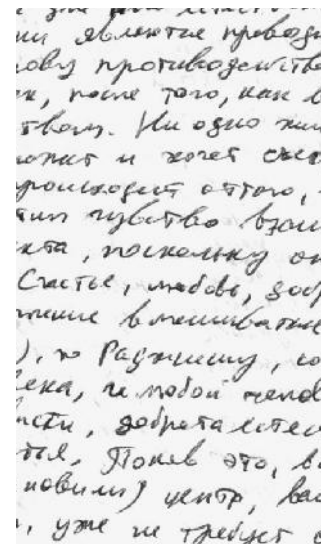 ии являются проводн
ову противодейство
к, после того, как в
твом. Ни одно жи
может и хочет счас
происходит оттого,
тим чувство взаи
кта, поскольку он
Счастье, любовь, доб
вмешиватель
), по Раджнишу, со
века, и любой челов
ости, доброта естес
тья. Поняв это, в
новили) центр, вас
, уже не требует с